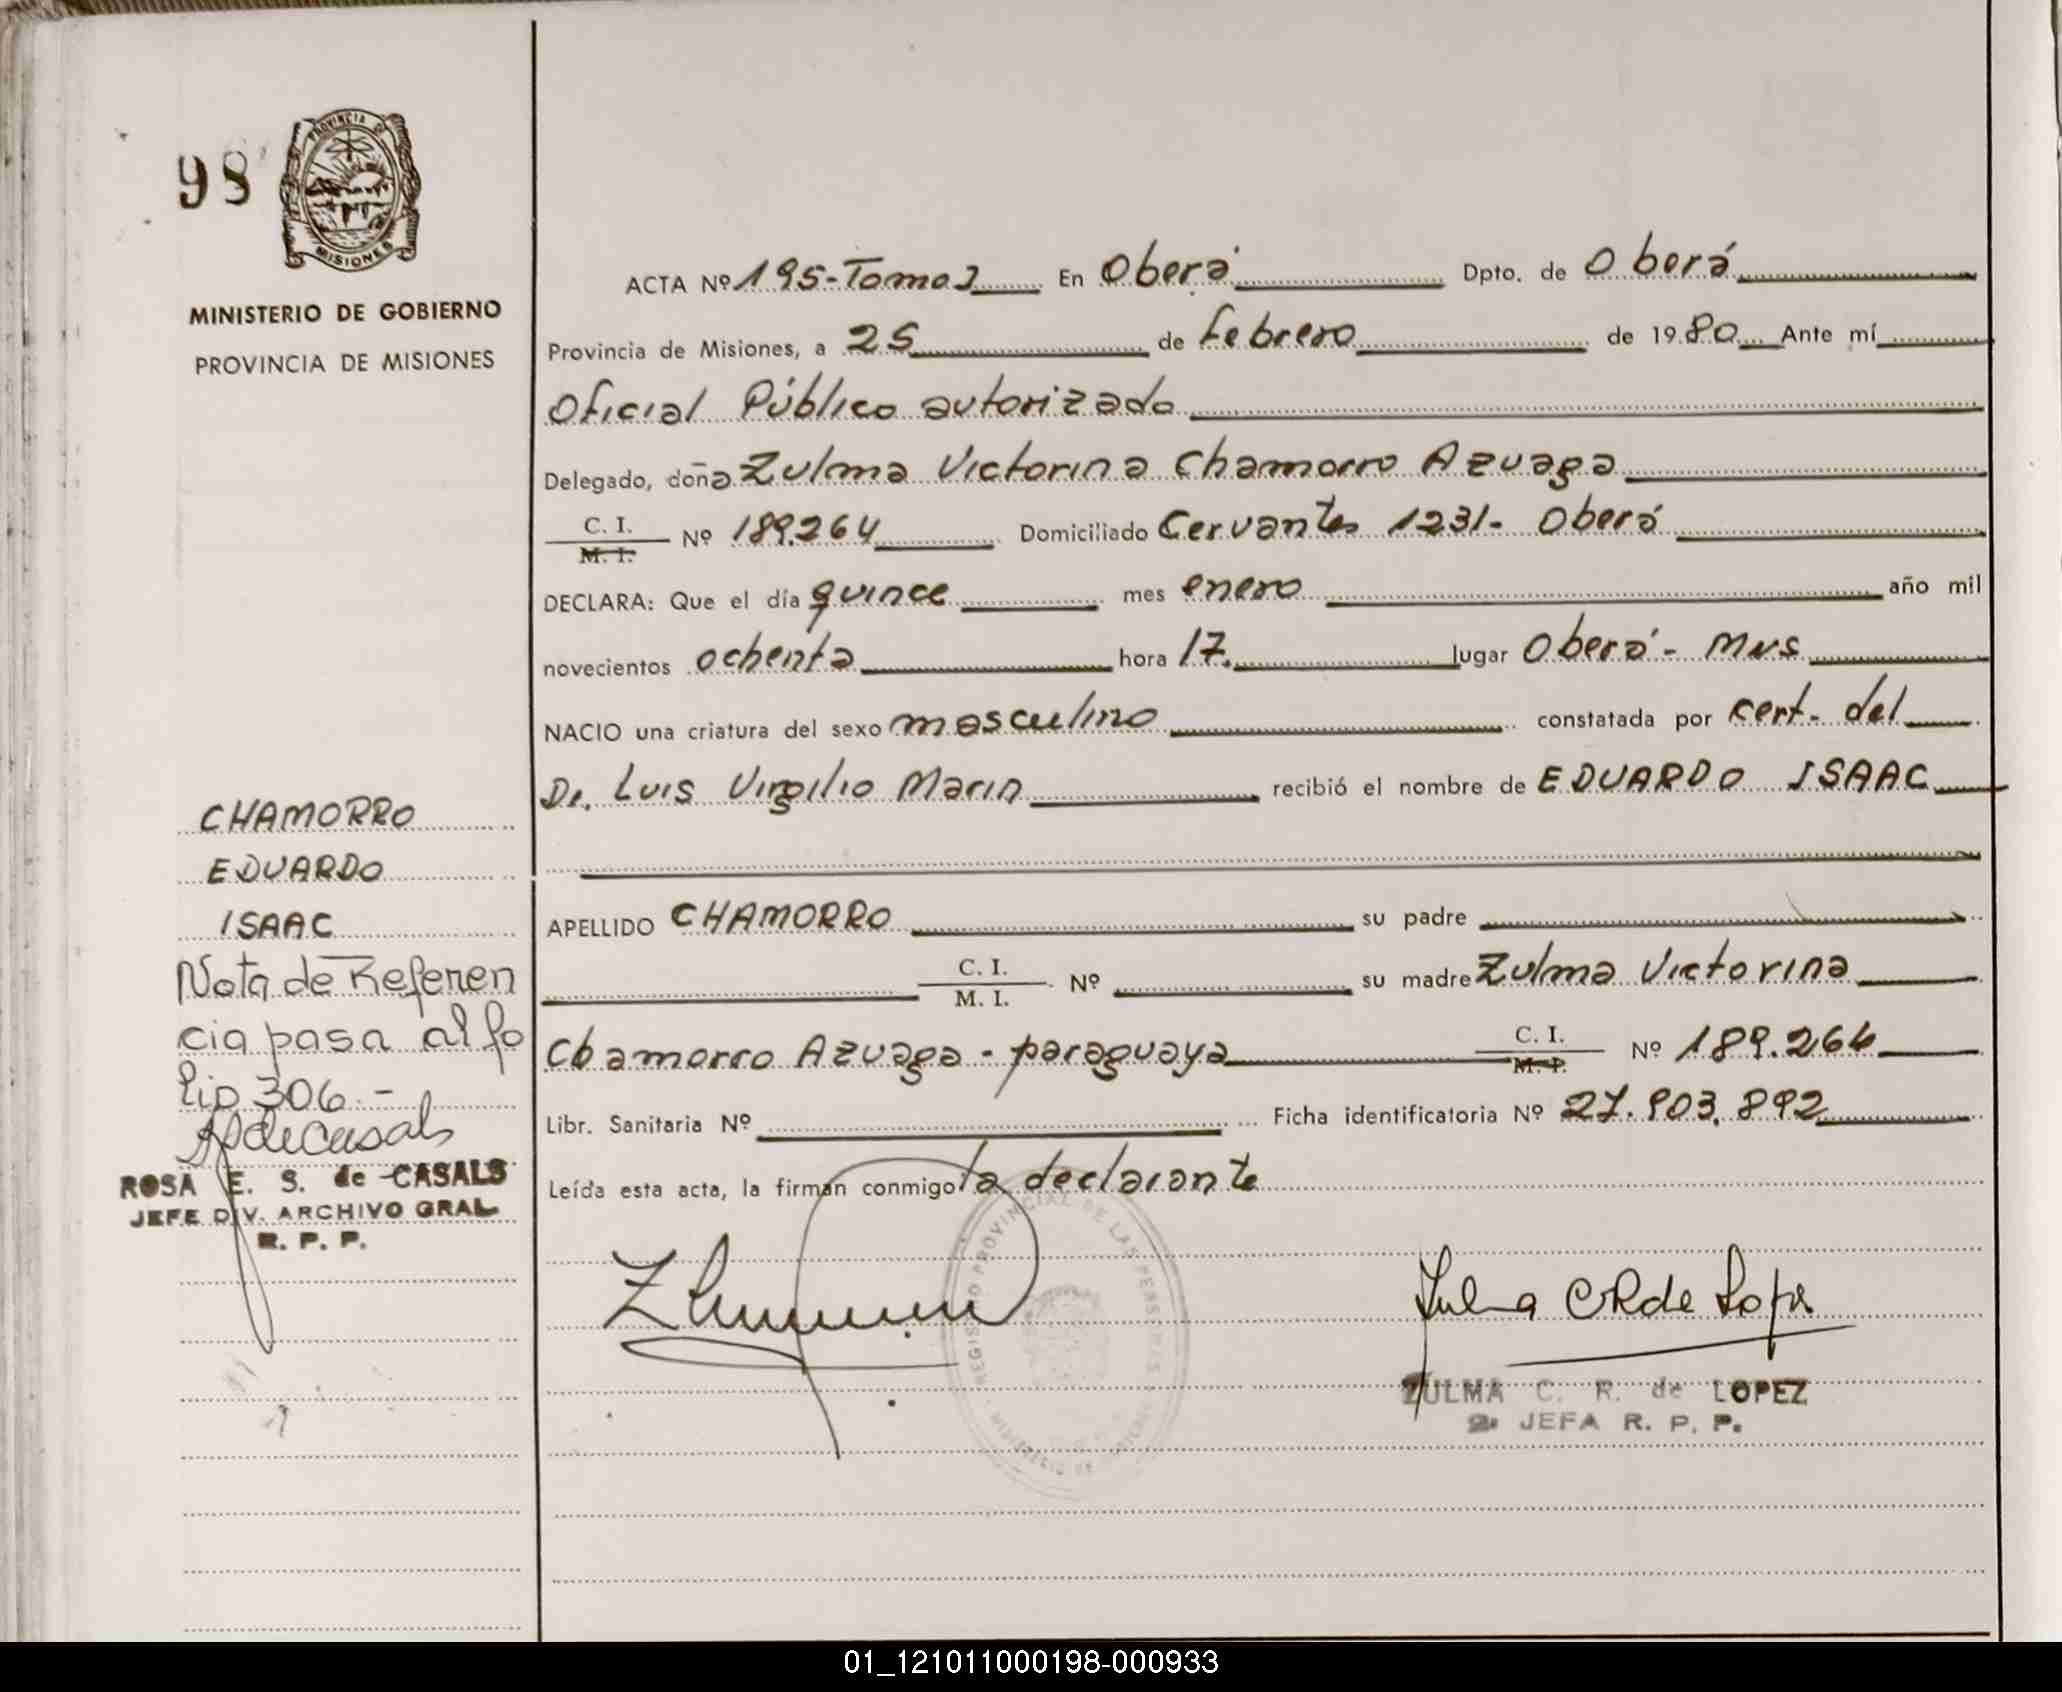 98
PROVINCIA DE
MISIONES
MINISTERIO DE GOBIERNO
PROVINCIA DE MISIONES
ACTA Nº 195-Tomo I En Oberá Dpto. de Oberá
Provincia de Misiones, a 25 de febrero de 1980 Ante mí
Oficial Público autorizado
Delegado, doña Zulma Victorina Chamorro Azuaga
C. I.
M. I. Nº 189.264 Domiciliado Cervantes 1231- Oberá
DECLARA: Que el día quince mes enero año mil
novecientos ochenta hora 17. lugar Oberá - Mns
NACIO una criatura del sexo masculino constatada por cert- del
Dr. Luis Virgilio Marin recibió el nombre de EDUARDO ISAAC
APELLIDO CHAMORRO su padre
C. I.
M. I. Nº su madre Zulma Victorina
Chamorro Azuaga - paraguaya C. I.
M. I. Nº 189.264
Libr. Sanitaria Nº Ficha identificatoria Nº 27.903.892
Leída esta acta, la firman conmigo la declarante
CHAMORRO
EDUARDO
ISAAC
Nota de Referen
cia pasa al fo
lio 306.-
ROSA E. S. de CASALS
JEFE DIV. ARCHIVO GRAL
R. P. P.
REGISTRO PROVINCIAL DE LAS PERSONAS
Zulma CR de Lopez
ZULMA C. R. de LOPEZ
2ª JEFA R. P. P.
01_121011000198-000933